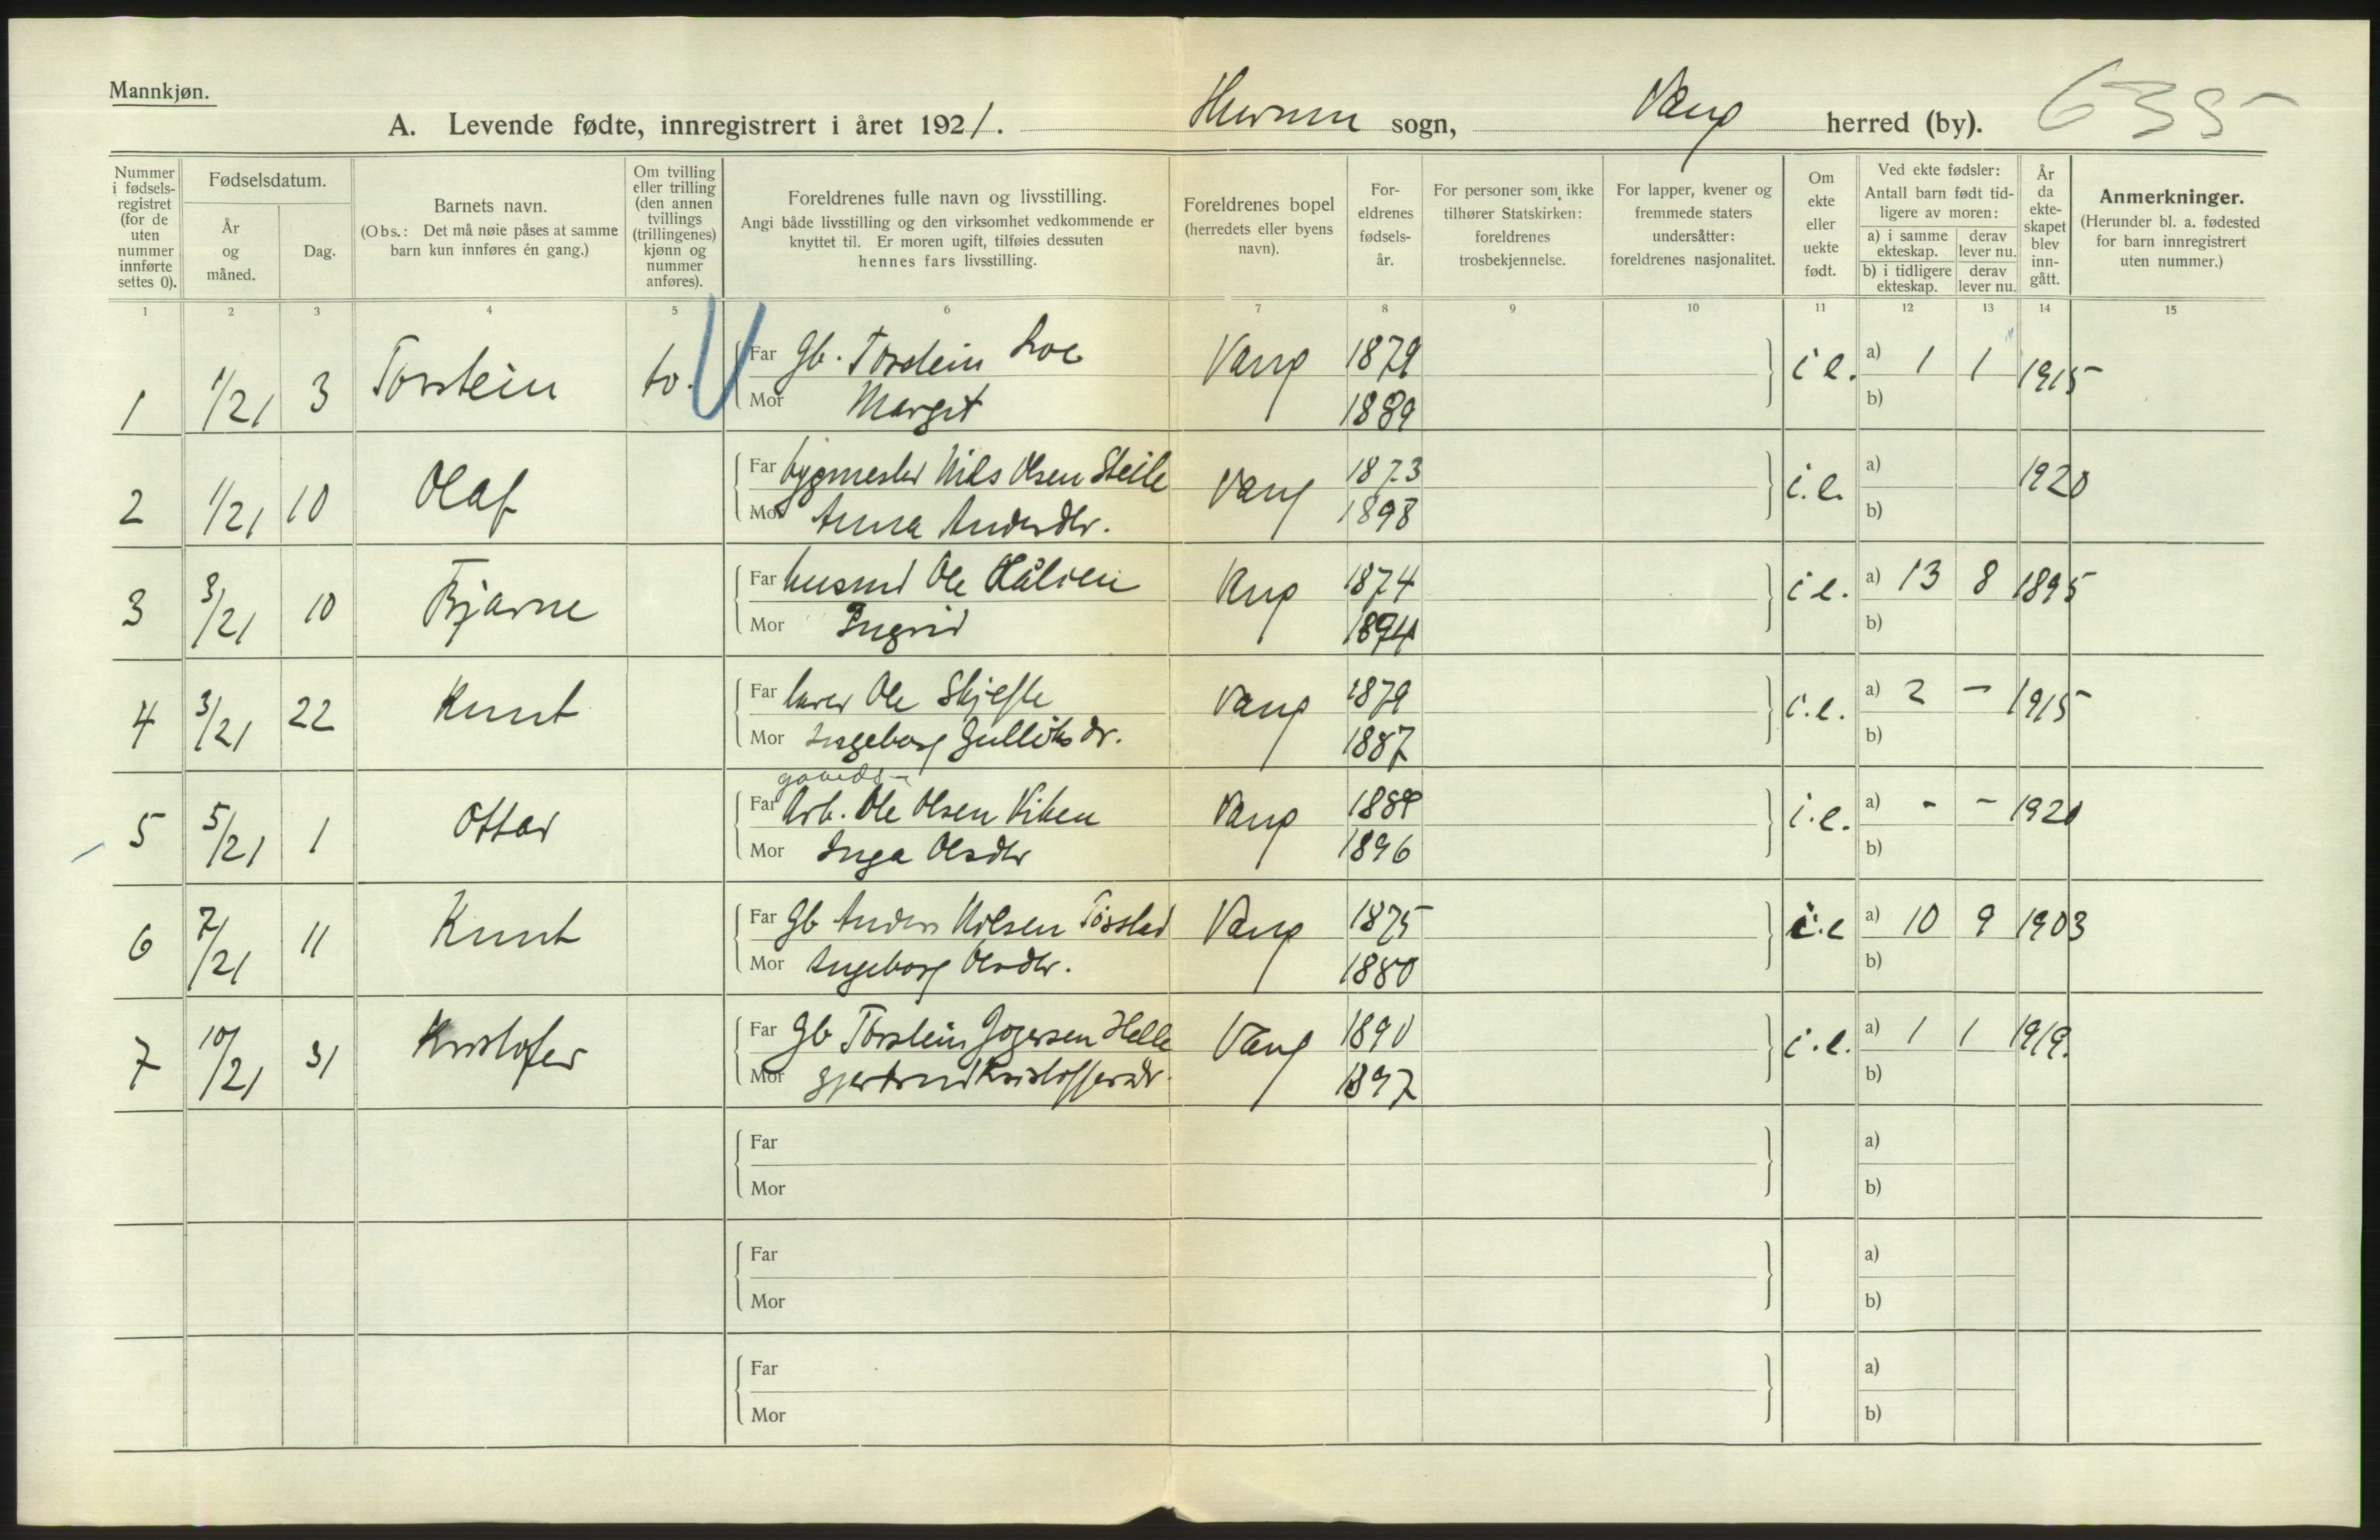 Mannkjøn.
A. Levende fødte, innregistrert i året 1921. sogn, Vang herred (by). 635
Nummer i fødsels-registret (for de uten nummer innførte settes 0).
Fødselsdatum.
År og måned.
Dag.
Barnets navn.
(Obs.: Det må nøie påses at samme barn kun innføres én gang.)
Om tvilling eller trilling (den annen tvillings (trillingenes) kjønn og nummer anføres).
Foreldrenes fulle navn og livsstilling.
Angi både livsstilling og den virksomhet vedkommende er knyttet til. Er moren ugift, tilføies dessuten hennes fars livsstilling.
Foreldrenes bopel (herredets eller byens navn).
For-eldrenes fødsels-år.
For personer som ikke tilhører Statskirken: foreldrenes trosbekjennelse.
For lapper, kvener og fremmede staters undersåtter: foreldrenes nasjonalitet.
Om ekte eller uekte født.
Ved ekte fødsler:
Antall barn født tid-ligere av moren:
a) i samme ekteskap. derav lever nu.
b) i tidligere ekteskap. derav lever nu.
År da ekte-skapet blev inn-gått.
Anmerkninger.
(Herunder bl. a. fødested for barn innregistrert uten nummer.)
1 2 3 4 5 6 7 8 9 10 11 12 13 14 15
1 1/21 3 Torstein to. Far Gb. Torstein Vang 1879 i e. a) 1 1 1915
Mor Margit 1889 b)
2 1/21 10 Olaf Far bygmester Nils Olsen Steile Vang 1873 i.e. a) 1920
Mor Anna Andersdtr. 1898 b)
3 3/21 10 Bjarne Far husmd Ole Hålien Vang 1874 i e. a) 13 8 1895
Mor Ingrid 1874 b)
4 3/21 22 Knut Far lærer Ole Skjefte Vang 1879 i.e. a) 2 - 1915
Mor Ingeborg Gulliksdr. 1887 b)
gårds-
5 5/21 1 Ottar Far Arb. Ole Olsen Viken Vang 1889 i.e. a) - - 1920
Mor Inga Olsdtr 1896 b)
6 7/21 11 Knut Far Gb Anders Nilsen Vang 1875 i.e a) 10 9 1903
Mor Ingeborg Olsdtr. 1880 b)
7 10/21 31 Kristofer Far Gb Torstein Helle Vang 1890 i.e. a) 1 1 1919.
Mor Gjertrud Kristoffersdr. 1897 b)
Far a)
Mor b)
Far a)
Mor b)
Far a)
Mor b)